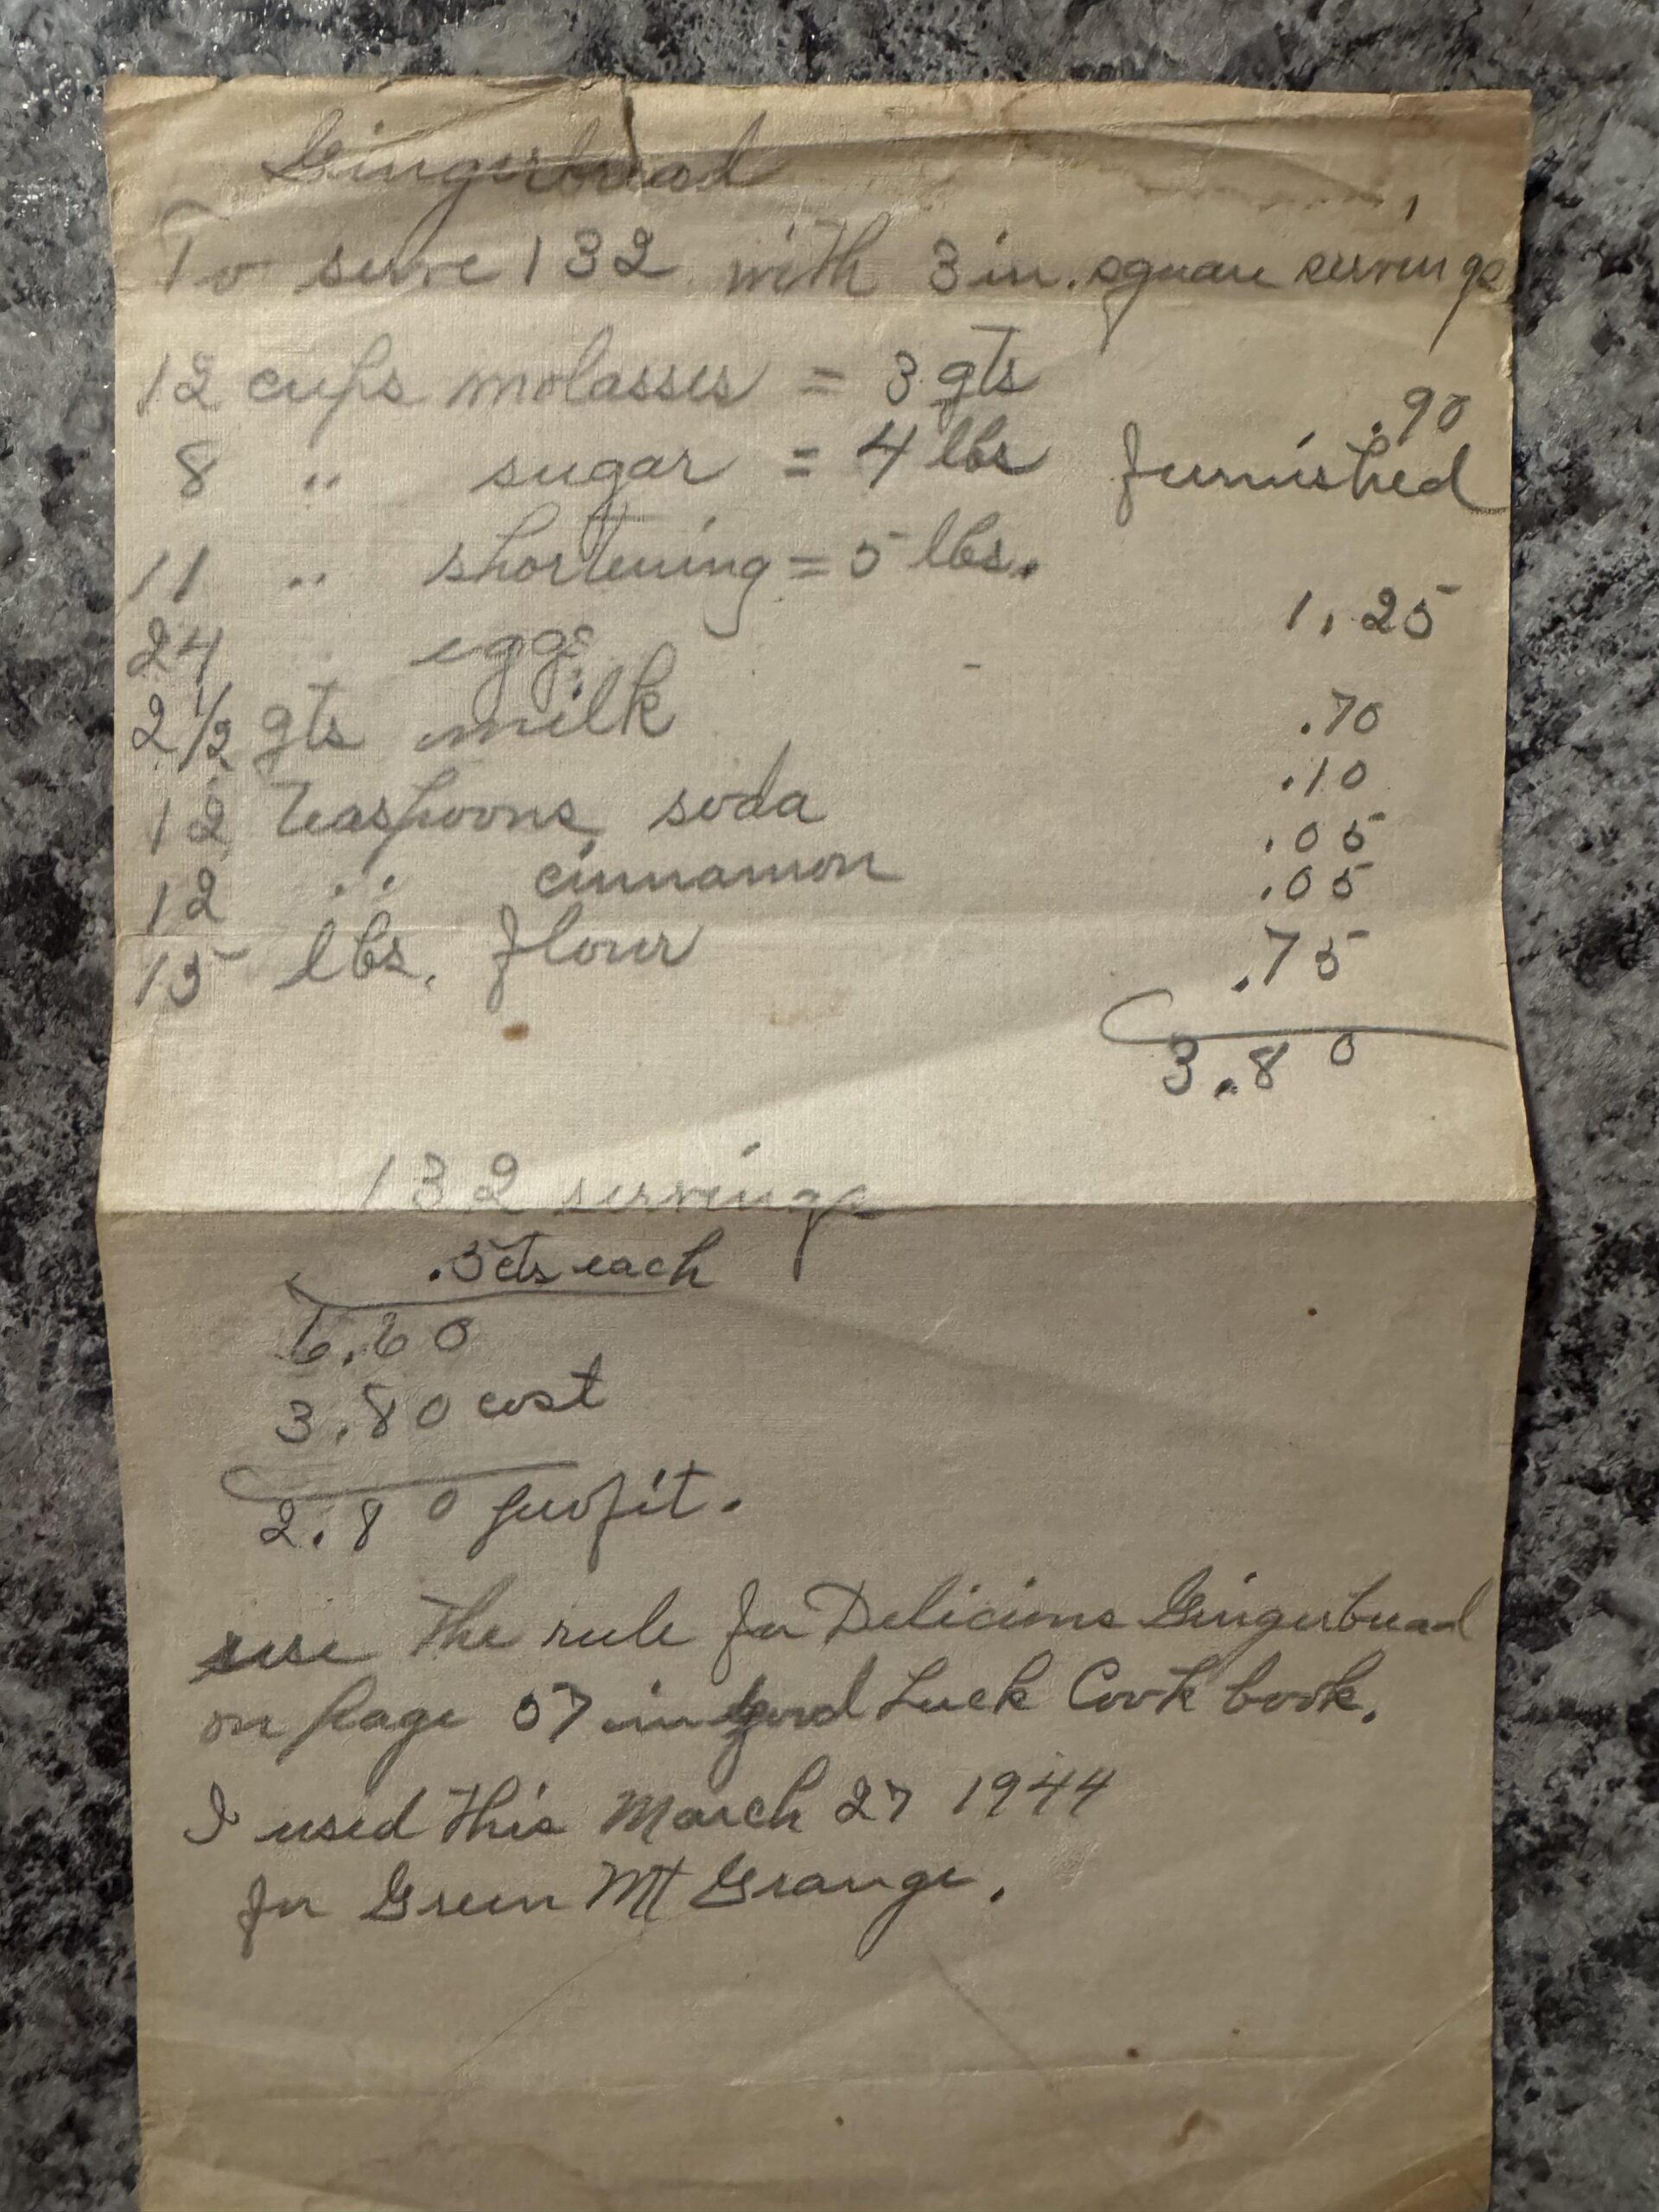 Gingerbread
To serve 132 with 3 in. square servings
12 cups molasses = 3 qts .90
8 " sugar = 4 lbs furnished
11 " shortening = 5 lbs. 1.25
24 eggs .70
2 1/2 qts milk .10
12 teaspoons soda .05
12 " cinnamon .05
15 lbs. flour .75
3.80
132 servings
.5cts each
6.60
3.80 cost
2.80 profit.
use the rule for Delicious Gingerbread
on page 57 in Good Luck Cook book.
I used this March 27 1944
for Green Mt Grange.